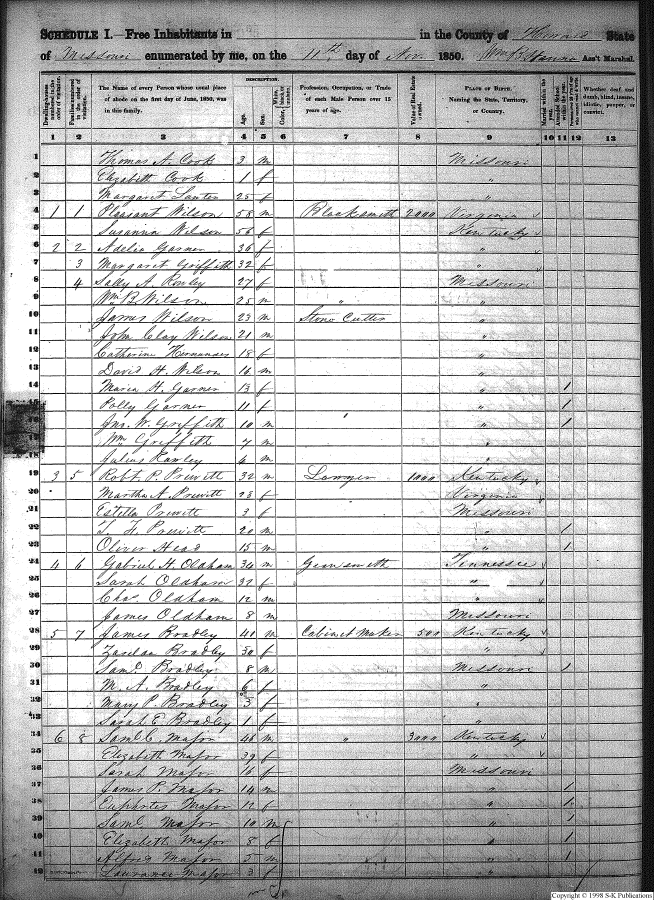 SCHEDULE I.—Free Inhabitants in in the County of State
of Missouri enumerated by me, on the 11th day of Nov. 1850. Ass't Marshal.
DESCRIPTION.
Dwelling-houses numbered in the order of visitation. Families numbered in the order of visitation. The Name of every Person whose usual place of abode on the first day of June, 1850, was in this family. Age. Sex. Color, White, black, or mulatto. Profession, Occupation, or Trade of each Male Person over 15 years of age. Value of Real Estate owned. PLACE OF BIRTH. Naming the State, Territory, or Country. Married within the year. Attended School within the year. Whether deaf and dumb, blind, insane, idiotic, pauper, or convict.
1 2 3 4 5 6 7 8 9 10 11 12 13
1 Thomas A. Cook 3 m Missouri
2 Elizabeth Cook 1 f "
3 Margaret 25 f "
4 1 1 Pleasant Wilson 58 m Blacksmith 2000 Virginia
5 Susanna Wilson 56 f Kentucky
6 2 2 Adelia Garner 36 f "
7 3 Margaret Griffith 32 f "
8 4 Sally A. 27 f Missouri
9 Wm B. Wilson 25 m " "
10 James Wilson 23 m Stone Cutter "
11 John Clay Wilson 21 m "
12 Catherine 18 f "
13 David H. Wilson 16 m "
14 Maria H. Garner 13 f " 1
15 Polly Garner 11 f " 1
Jno. W. Griffith 10 m " 1
Wm Griffith 7 m "
18 Julius 4 m "
19 3 5 Robt. P. Prewitt 32 m Lawyer 1000 Kentucky
20 Martha A. Prewitt 23 f Virginia
21 Estella Prewitt 3 f Missouri
22 Prewitt 20 m " 1
23 Oliver Head 15 m " 1
24 4 6 Gabriel H. Oldham 34 m Gunsmith Tennessee
25 Sarah Oldham 32 f "
26 Chas. Oldham 12 m "
27 James Oldham 8 m Missouri
28 5 7 James Bradley 40 m Cabinet Maker 500 Kentucky
29 Bradley 30 f "
30 Saml. Bradley 8 m Missouri 1
31 M. A. Bradley 6 f "
32 Mary P. Bradley 3 f "
33 Sarah E. Bradley 1 f "
34 6 8 Saml. C. Major 46 m " 3000 Kentucky
35 Elizabeth Major 39 f "
36 Sarah Major 16 f Missouri
37 James P. Major 14 m " 1
38 Major 12 f " 1
39 Saml. Major 10 m " 1
40 Elizabeth Major 8 f " 1
41 Alfred Major 5 m " 1
42 Major 3 f "
Copyright © 1998 S-K Publications